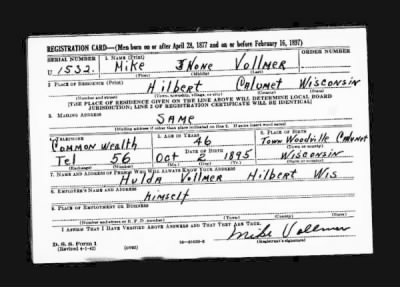 REGISTRATION CARD—(Men born on or after April 28, 1877 and on or before February 16, 1897)
SERIAL NUMBER 1. NAME (Print) ORDER NUMBER
U 1532. Mike NONE Vollmer
(First) (Middle) (Last)
2. PLACE OF RESIDENCE (Print)
Hilbert Calumet Wisconsin
(Number and street) (Town, township, village, or city) (County) (State)
[THE PLACE OF RESIDENCE GIVEN ON THE LINE ABOVE WILL DETERMINE LOCAL BOARD
JURISDICTION; LINE 2 OF REGISTRATION CERTIFICATE WILL BE IDENTICAL]
3. MAILING ADDRESS
SAME
[Mailing address if other than place indicated on line 2. If same insert word same]
4. TELEPHONE 5. AGE IN YEARS 6. PLACE OF BIRTH
Common Wealth 46 Town Woodville Calumet
DATE OF BIRTH (Town or county)
Tel 56 Oct 2 1895 Wisconsin
(Exchange) (Number) (Mo.) (Day) (Yr.) (State or country)
7. NAME AND ADDRESS OF PERSON WHO WILL ALWAYS KNOW YOUR ADDRESS
Hulda Vollmer Hilbert Wis
8. EMPLOYER'S NAME AND ADDRESS
himself
9. PLACE OF EMPLOYMENT OR BUSINESS
(Number and street or R. F. D. number) (Town) (County) (State)
I AFFIRM THAT I HAVE VERIFIED ABOVE ANSWERS AND THAT THEY ARE TRUE.
Mike Vollmer
D. S. S. Form 1 (Registrant's signature)
(Revised 4-1-42) (over)